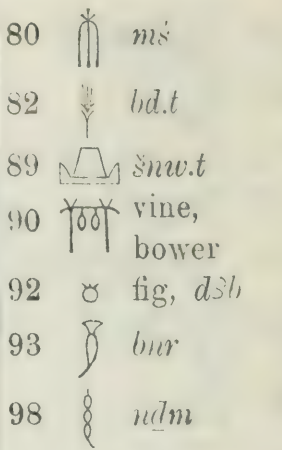 80 𓄟 mś
82 bd.t
89 šnw.t
90 vine,
bower
92 fig, dꜣb
93 bnr
98 nḏm